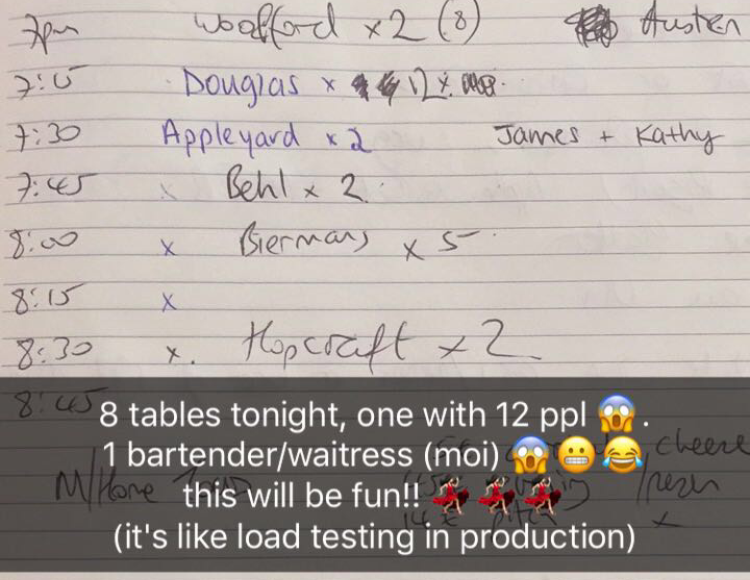 7pm Woofford x 2 (8) Austen
7:15 Douglas x 12 x
7:30 Appleyard x 2 James + Kathy
7:45 x Behl x 2
8:00 x Biermans x 5
8:15 x
8:30 x. Hopcraft x 2
8:45
8 tables tonight, one with 12 ppl 😱.
1 bartender/waitress (moi) 😱😬😂
this will be fun!! 💃💃💃
(it's like load testing in production)
cheese
M/Home
x